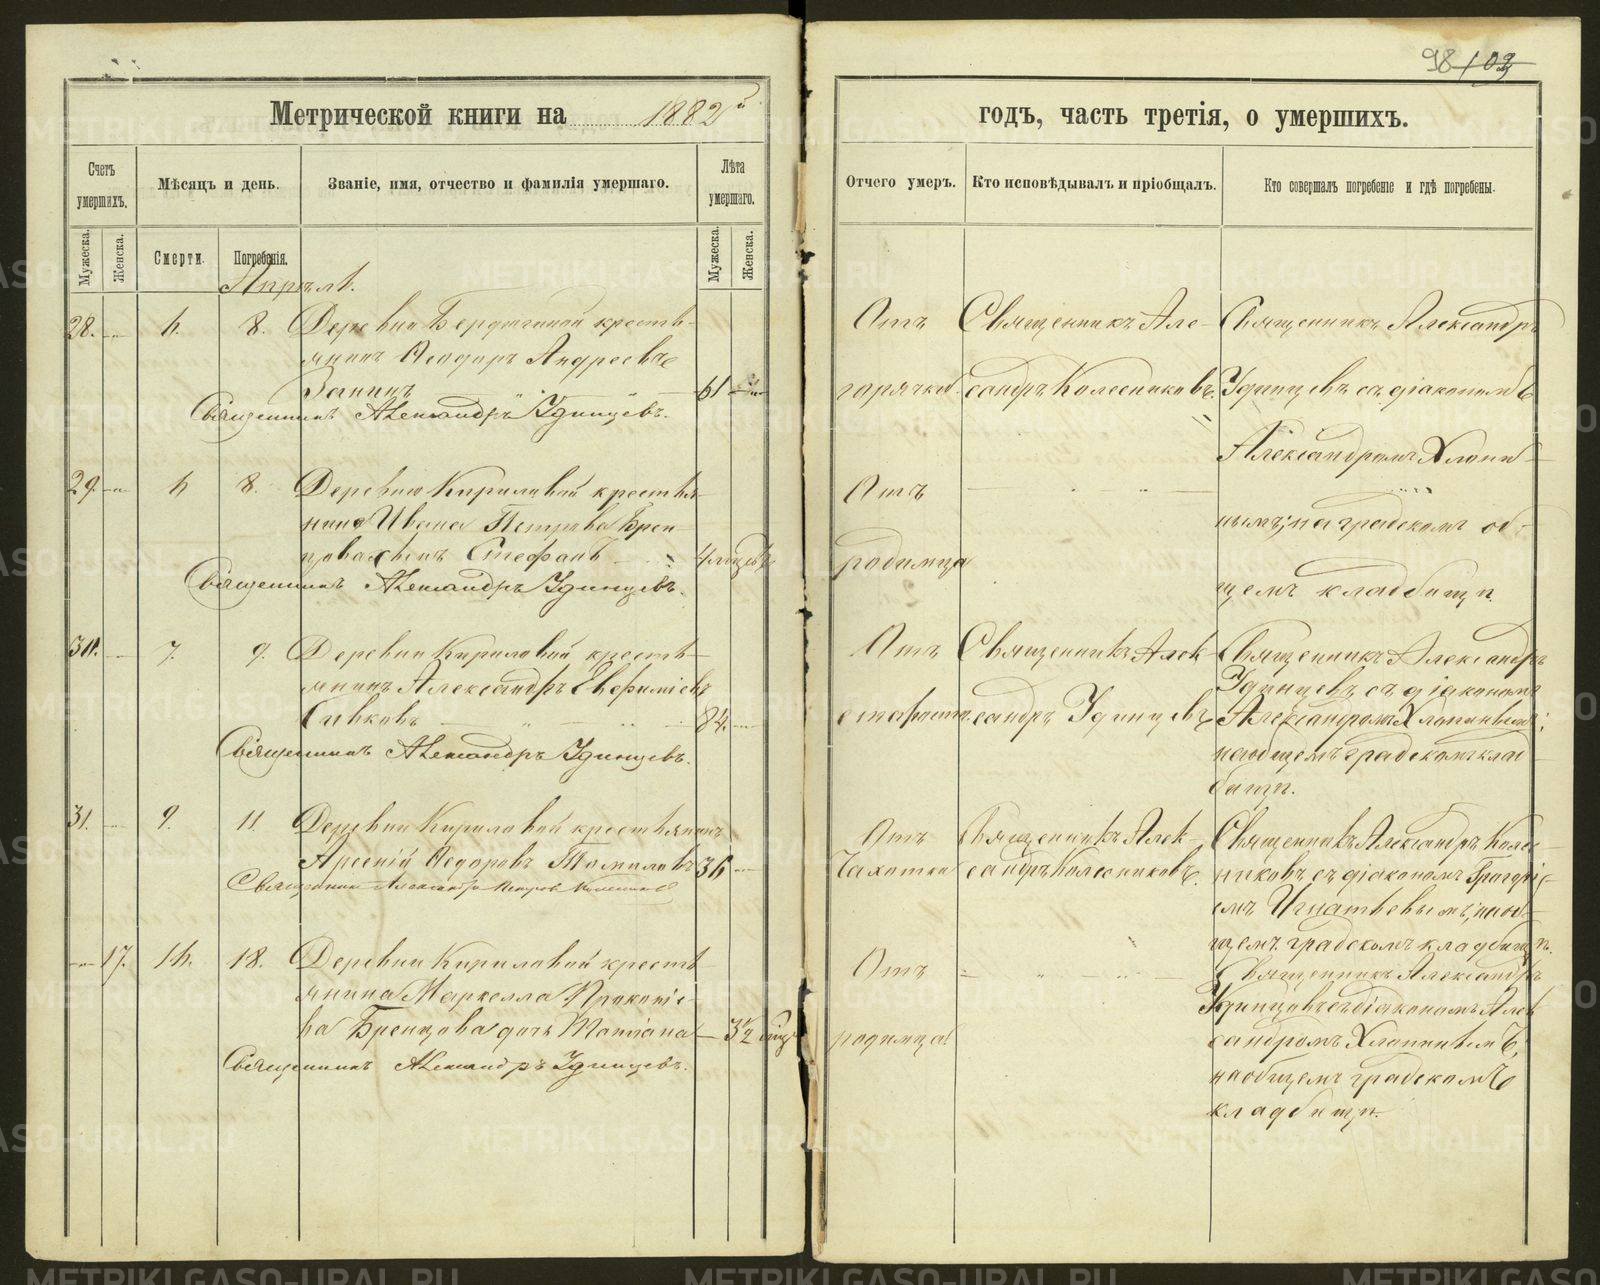 98 103
Метрической книги на 1882 й
годъ, часть третія, о умершихъ.
Счетъ умершихъ.
Мѣсяцъ и день.
Званіе, имя, отчество и фамилія умершаго.
Лѣта умершаго.
Отчего умеръ.
Кто исповѣдывалъ и пріобщалъ.
Кто совершалъ погребеніе и гдѣ погребены.
Мужеска.
Женска.
Смерти.
Погребенія.
Мужеска.
Женска.
Апрѣль.
28. 6. 8. Деревни крестья-
янинъ Ѳеодоръ Андреевъ
Занинъ 61
Священникъ Александръ Удинцевъ.
Отъ
горячки
Священникъ Але-
ксандръ Колесниковъ.
Священникъ Александръ
Удинцевъ съ діакономъ
Александромъ Хлопи-
нымъ; на градскомъ об-
щемъ кладбищѣ.
29. 6 8. Деревни Кириловой крестья-
нина Ивана Петрова Брен-
цова сынъ Стефанъ 4 мѣсц.
Священникъ Александръ Удинцевъ.
Отъ
родимца
30. 7. 9. Деревни Кириловой кресть-
янинъ Александръ Евфиміевъ
Сивковъ 84.
Священникъ Александръ Удинцевъ.
Отъ
старости
Священникъ Алек-
сандръ Удинцевъ
Священникъ Александръ
Удинцевъ съ діакономъ
Александромъ Хлопинымъ;
на общемъ градскомъ клад-
бищѣ.
31. 9. 11. Деревни Кириловой крестьянинъ
Арсеній Ѳедоровъ Томиловъ 36
Священникъ Александръ Петровъ Колесниковъ
Отъ
Чахотки
Священникъ Алек-
сандръ Колесниковъ.
Священникъ Александръ Колес-
никовъ съ діакономъ Григорі-
емъ Игнатьевымъ; на об-
щемъ градскомъ кладбищѣ.
17. 16. 18. Деревни Кириловой кресть-
янина Маркелла Прокопіе-
ва Бренцова дочь Татіана 3 1/2 мѣц
Священникъ Александръ Удинцевъ.
Отъ
родимца
Священникъ Александръ
Удинцовъ съ діакономъ Алек-
сандромъ Хлопинымъ;
на общемъ градскомъ
кладбищѣ.
METRIKI.GASO-URAL.RU